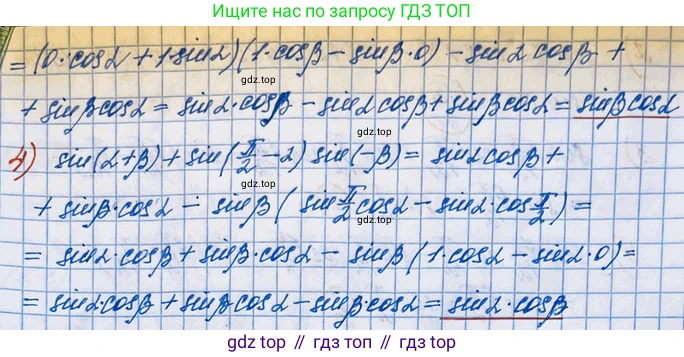 Ищите нас по запросу ГДЗ ТОП
= (0·cosα + 1·sinα)(1·cosβ − sinβ·0) − sinα cosβ +
gdz.top
+ sinβ cosα = sinα·cosβ − sinα cosβ + sinβ cosα = sinβ cosα
gdz.top
4) sin(α+β) + sin(π/2 − α) sin(−β) = sinα cosβ +
+ sinβ·cosα − sinβ (sin π/2 cosα − sinα·cos π/2) =
gdz.top
= sinα·cosβ + sinβ·cosα − sinβ (1·cosα − sinα·0) =
gdz.top
= sinα·cosβ + sinβ cosα − sinβ·cosα = sinα·cosβ
gdz.top // гдз топ // гдз.топ